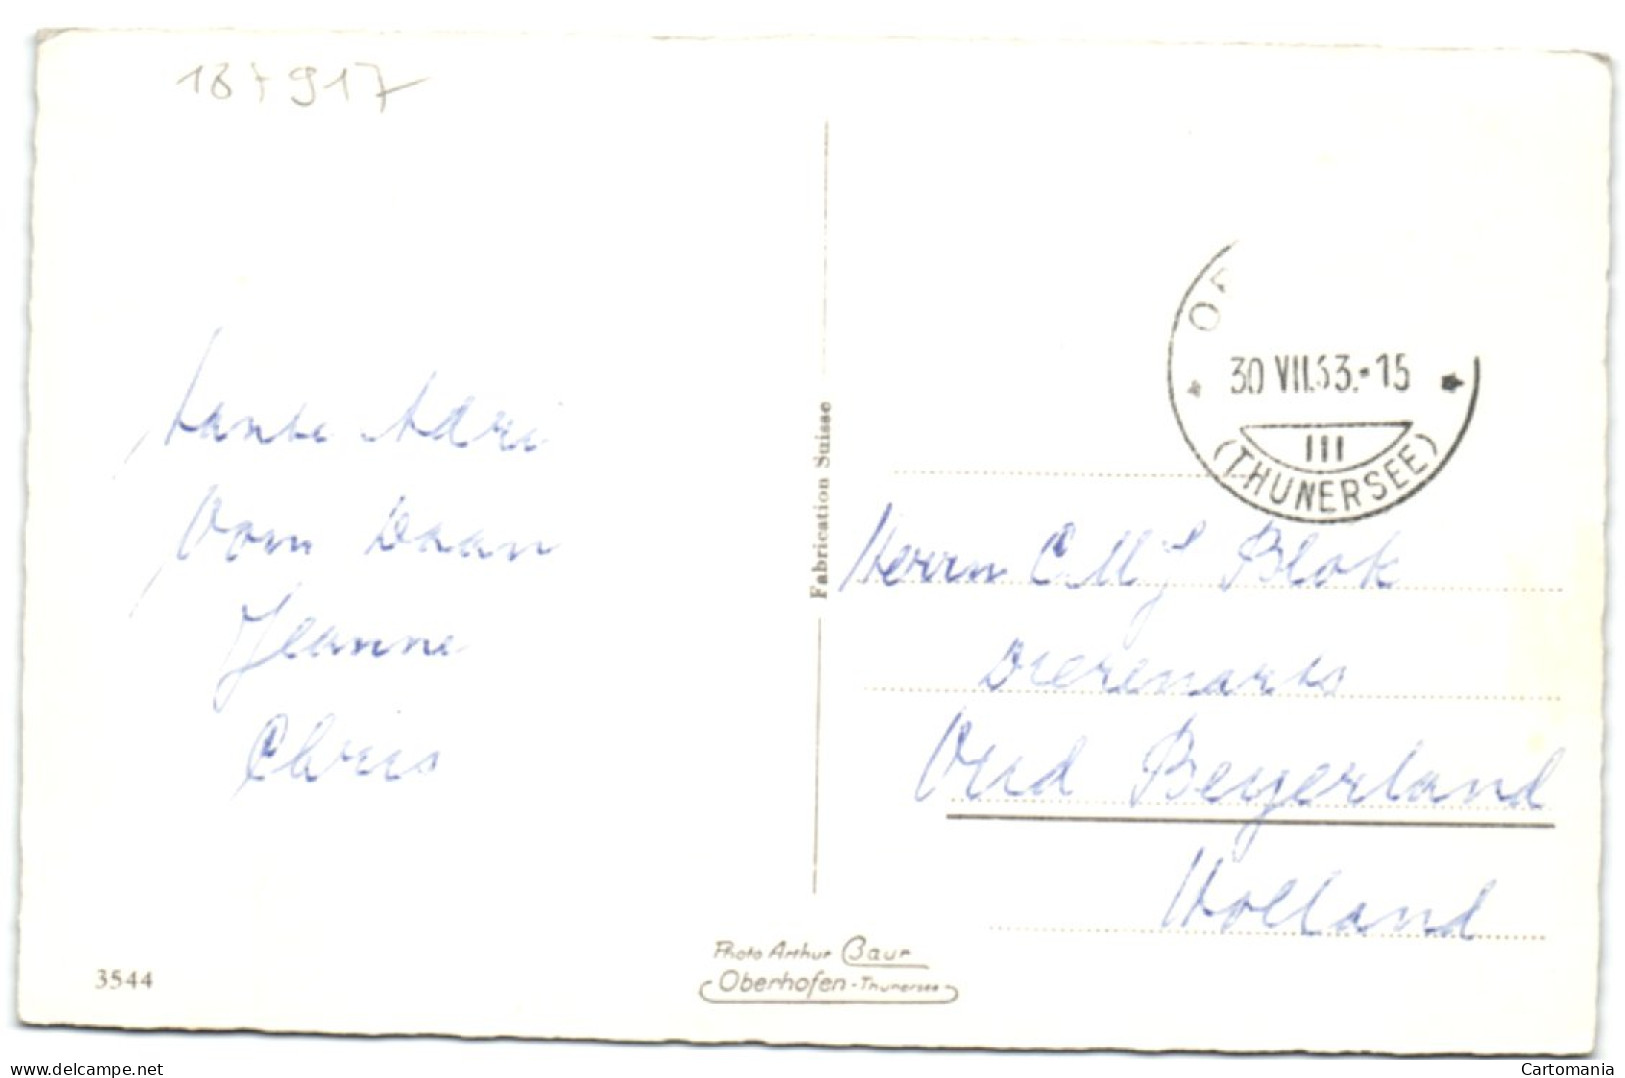 187917
Tante Adri
Oom Daan
Jeanne
Chris
Fabrication Suisse
30 VII.63.-15
III
(THUNERSEE)
Herrn C.M.J. Blok
Dierenarts
Oud Beyerland
Holland
3544
Photo Arthur Baur
Oberhofen-Thunersee
delcampe.net
Cartomania